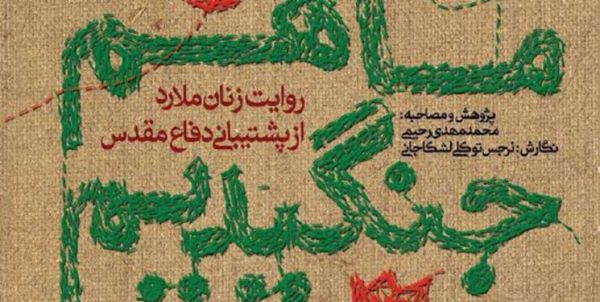 ما هم
روایت زنان ملارد
از پشتیبانی دفاع مقدس
پژوهش و مصاحبه:
محمدمهدی رحیمی
نگارش: نرجس توکلی لشکاجانی
جنگیدیم